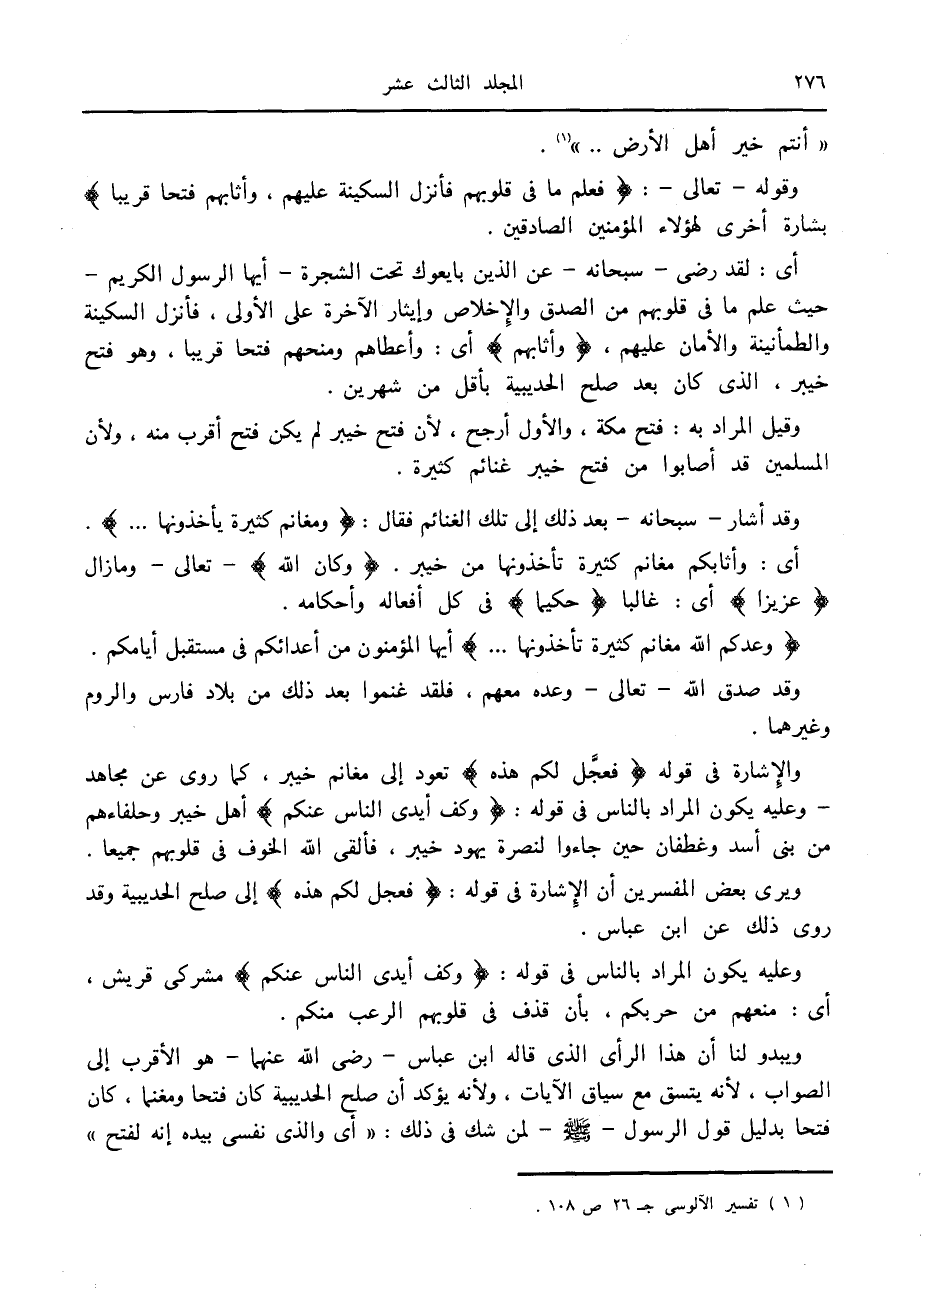 ٢٧٦ المجلد الثالث عشر
« أنتم خير أهل الأرض .. »(١) .
وقوله – تعالى – : ﴿ فعلم ما فى قلوبهم فأنزل السكينة عليهم ، وأثابهم فتحا قريبا ﴾
بشارة أخرى لهؤلاء المؤمنين الصادقين .
أى : لقد رضى – سبحانه – عن الذين بايعوك تحت الشجرة – أيها الرسول الكريم –
حيث علم ما فى قلوبهم من الصدق والإِخلاص وإيثار الآخرة على الأولى ، فأنزل السكينة
والطمأنينة والأمان عليهم ، ﴿ وأثابهم ﴾ أى : وأعطاهم ومنحهم فتحا قريبا ، وهو فتح
خيبر ، الذى كان بعد صلح الحديبية بأقل من شهرين .
وقيل المراد به : فتح مكة ، والأول أرجح ، لأن فتح خيبر لم يكن فتح أقرب منه ، ولأن
المسلمين قد أصابوا من فتح خيبر غنائم كثيرة .
وقد أشار – سبحانه – بعد ذلك إلى تلك الغنائم فقال : ﴿ ومغانم كثيرة يأخذونها ... ﴾ .
أى : وأثابكم مغانم كثيرة تأخذونها من خيبر . ﴿ وكان الله ﴾ – تعالى – ومازال
﴿ عزيزا ﴾ أى : غالبا ﴿ حكيما ﴾ فى كل أفعاله وأحكامه .
﴿ وعدكم الله مغانم كثيرة تأخذونها ... ﴾ أيها المؤمنون من أعدائكم فى مستقبل أيامكم .
وقد صدق الله – تعالى – وعده معهم ، فلقد غنموا بعد ذلك من بلاد فارس والروم
وغيرهما .
والإِشارة فى قوله ﴿ فعجَّل لكم هذه ﴾ تعود إلى مغانم خيبر ، كما روى عن مجاهد
– وعليه يكون المراد بالناس فى قوله : ﴿ وكف أيدى الناس عنكم ﴾ أهل خيبر وحلفاءهم
من بنى أسد وغطفان حين جاءوا لنصرة يهود خيبر ، فألقى الله الخوف فى قلوبهم جميعا .
ويرى بعض المفسرين أن الإِشارة فى قوله : ﴿ فعجل لكم هذه ﴾ إلى صلح الحديبية وقد
روى ذلك عن ابن عباس .
وعليه يكون المراد بالناس فى قوله : ﴿ وكف أيدى الناس عنكم ﴾ مشركى قريش ،
أى : منعهم من حربكم ، بأن قذف فى قلوبهم الرعب منكم .
ويبدو لنا أن هذا الرأى الذى قاله ابن عباس – رضى الله عنهما – هو الأقرب إلى
الصواب ، لأنه يتسق مع سياق الآيات ، ولأنه يؤكد أن صلح الحديبية كان فتحا ومغنما ، كان
فتحا بدليل قول الرسول – ﷺ – لمن شك فى ذلك : « أى والذى نفسى بيده إنه لفتح »
( ١ ) تفسير الآلوسى جـ ٢٦ ص ١٠٨ .